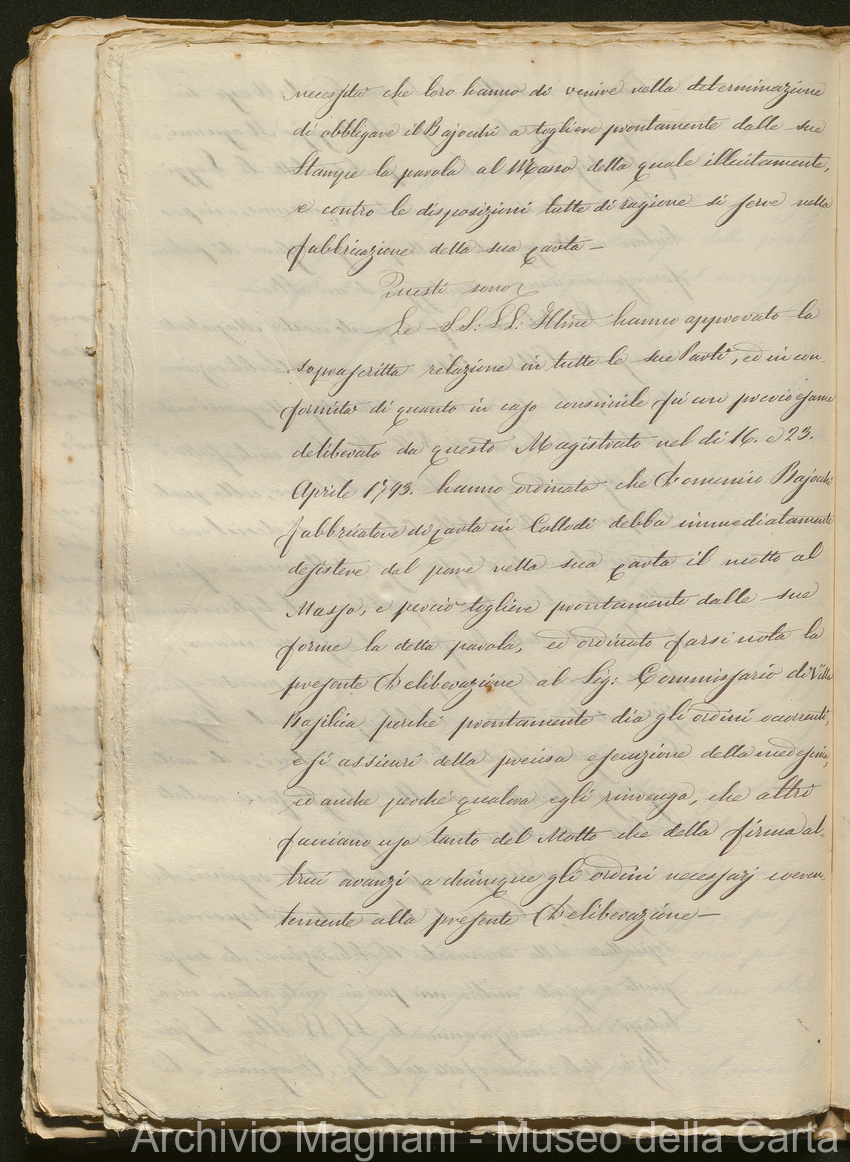 necessità che loro hanno di venire nella determinazione
di obbligare il Bajocchi a togliere prontamente dalle sue
Stampe la parola al Masso della quale illicitamente,
e contro le disposizioni tutte di ragione si serve nella
fabbricazione della sua carta —
Questi sono
Le SS: LL: Illme hanno approvato la
soprascritta relazione in tutte le sue Parti, ed in con-
formità di quanto in caso consimile fù con precio esame
deliberato da questo Magistrato nel dì 16. e 23.
Aprile 1793. hanno ordinato che Domenico Bajocchi
fabbricatore di carta in Collodi debba immediatamente
desistere dal porre nella sua carta il motto al
Masso, e perciò togliere prontamente dalle sue
forme la detta parola, ed ordinato farsi nota la
presente Deliberazione al Sig: Commissario di Villa
Basilica perché prontamente dia gli ordini occorrenti,
e si assicuri della precisa esecuzione della medesima,
ed anche perché qualora egli rinvenga, che altri
facciano uso tanto del Motto che della firma al-
trui avanzi a chiunque gli ordini necessarj coeren-
temente alla presente Deliberazione —
Archivio Magnani - Museo della Carta